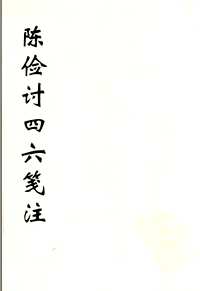 陈俭讨四六笺注